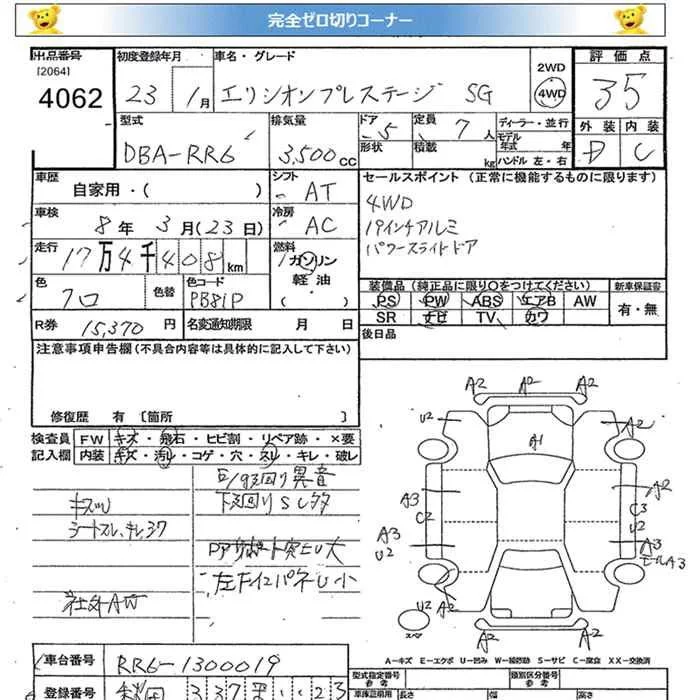 完全ゼロ切りコーナー
出品番号 初度登録年月 車名・グレード 2WD 評価点
[2064]
4062 23 1月 エリシオンプレステージ SG 4WD 35
型式 排気量 ドア 5 定員 7人 ディーラー・並行 外装 内装
DBA-RR6 3,500cc 形状 積載 kg モデル年式 年 D C
ハンドル 左・右
車歴 シフト セールスポイント (正常に機能するものに限ります)
自家用・( ) AT 4WD
車検 冷房 19インチアルミ
8年3月(23日) AC パワースライドドア
走行 燃料
17万4千408km ガソリン
軽油
色 色替 色コード ( ) 装備品(純正品に限り○をつけてください) 新車保証書
クロ PB81P PS PW ABS エアB AW 有・無
R券 15,370円 名変通知期限 月 日 SR ナビ TV カワ
注意事項申告欄(不具合内容等は具体的に記入して下さい) 後日品
修復歴 有 [箇所 ]
検査員 FW キズ・飛石・ヒビ割・リペア跡・×要
記入欄 内装 キズ・汚レ・コゲ・穴・スレ・キレ・破レ
異音
下廻りS
シートスレ、キレ
社外AW
A2 A2 A2
U2 A2
A1
A3 A2
C2 C3
A3 U2
U2 A3
A3
U2 A2
スペア
A2 A2 A2
A-キズ E-エクボ U-凹み W-補修跡 S-サビ C-腐食 XX-交換済
車台番号 RR6-1300019 型式指定番号 参考 類別区分番号 参考
登録番号 車庫証明用 長さ 幅 高さ